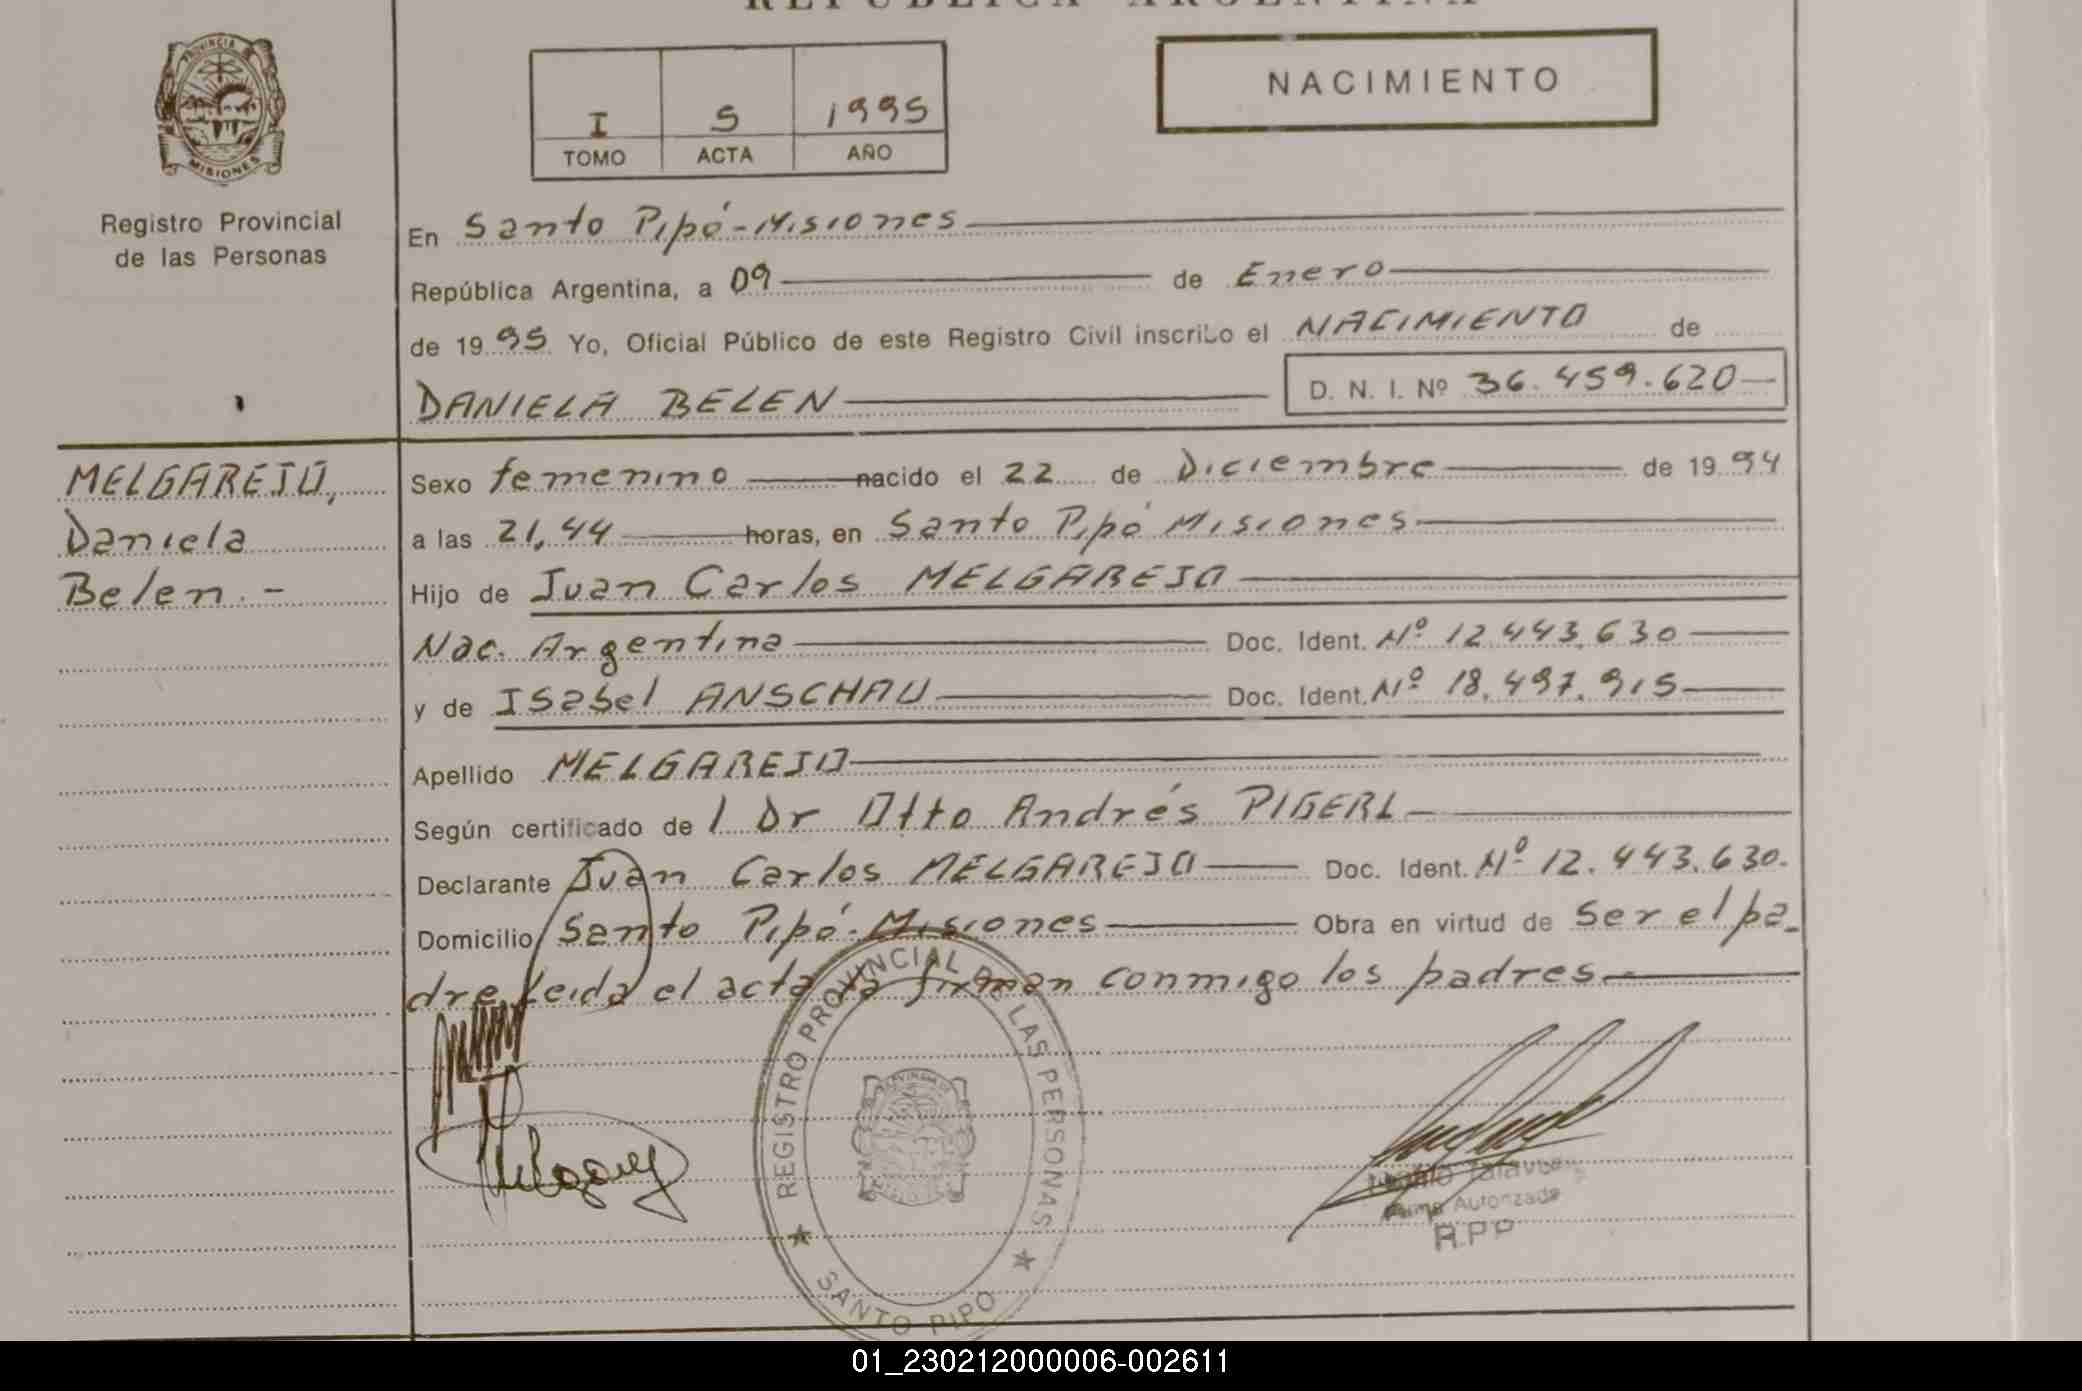 REPUBLICA ARGENTINA
PROVINCIA DE
MISIONES
Registro Provincial
de las Personas
I S 1995
TOMO ACTA AÑO
NACIMIENTO
En Santo Pipó-Misiones
República Argentina, a 09 de Enero
de 1995 Yo, Oficial Público de este Registro Civil inscribo el NACIMIENTO de
DANIELA BELEN D. N. I. Nº 36.459.620
MELGAREJO,
Daniela
Belen.-
Sexo femenino nacido el 22 de Diciembre de 1994
a las 21,44 horas, en Santo Pipó Misiones
Hijo de Juan Carlos MELGAREJO
Nac. Argentina Doc. Ident. Nº 12.443.630
y de Isabel ANSCHAU Doc. Ident. Nº 18.497.915
Apellido MELGAREJO
Según certificado de l Dr Otto Andrés PIGERL
Declarante Juan Carlos MELGAREJO Doc. Ident. Nº 12.443.630.
Domicilio Santo Pipó-Misiones Obra en virtud de Ser el pa_
dre, Leida el acta la firman conmigo los padres
REGISTRO PROVINCIAL DE LAS PERSONAS
SANTO PIPO
Firma Autorizada
R.P.P
01_230212000006-002611